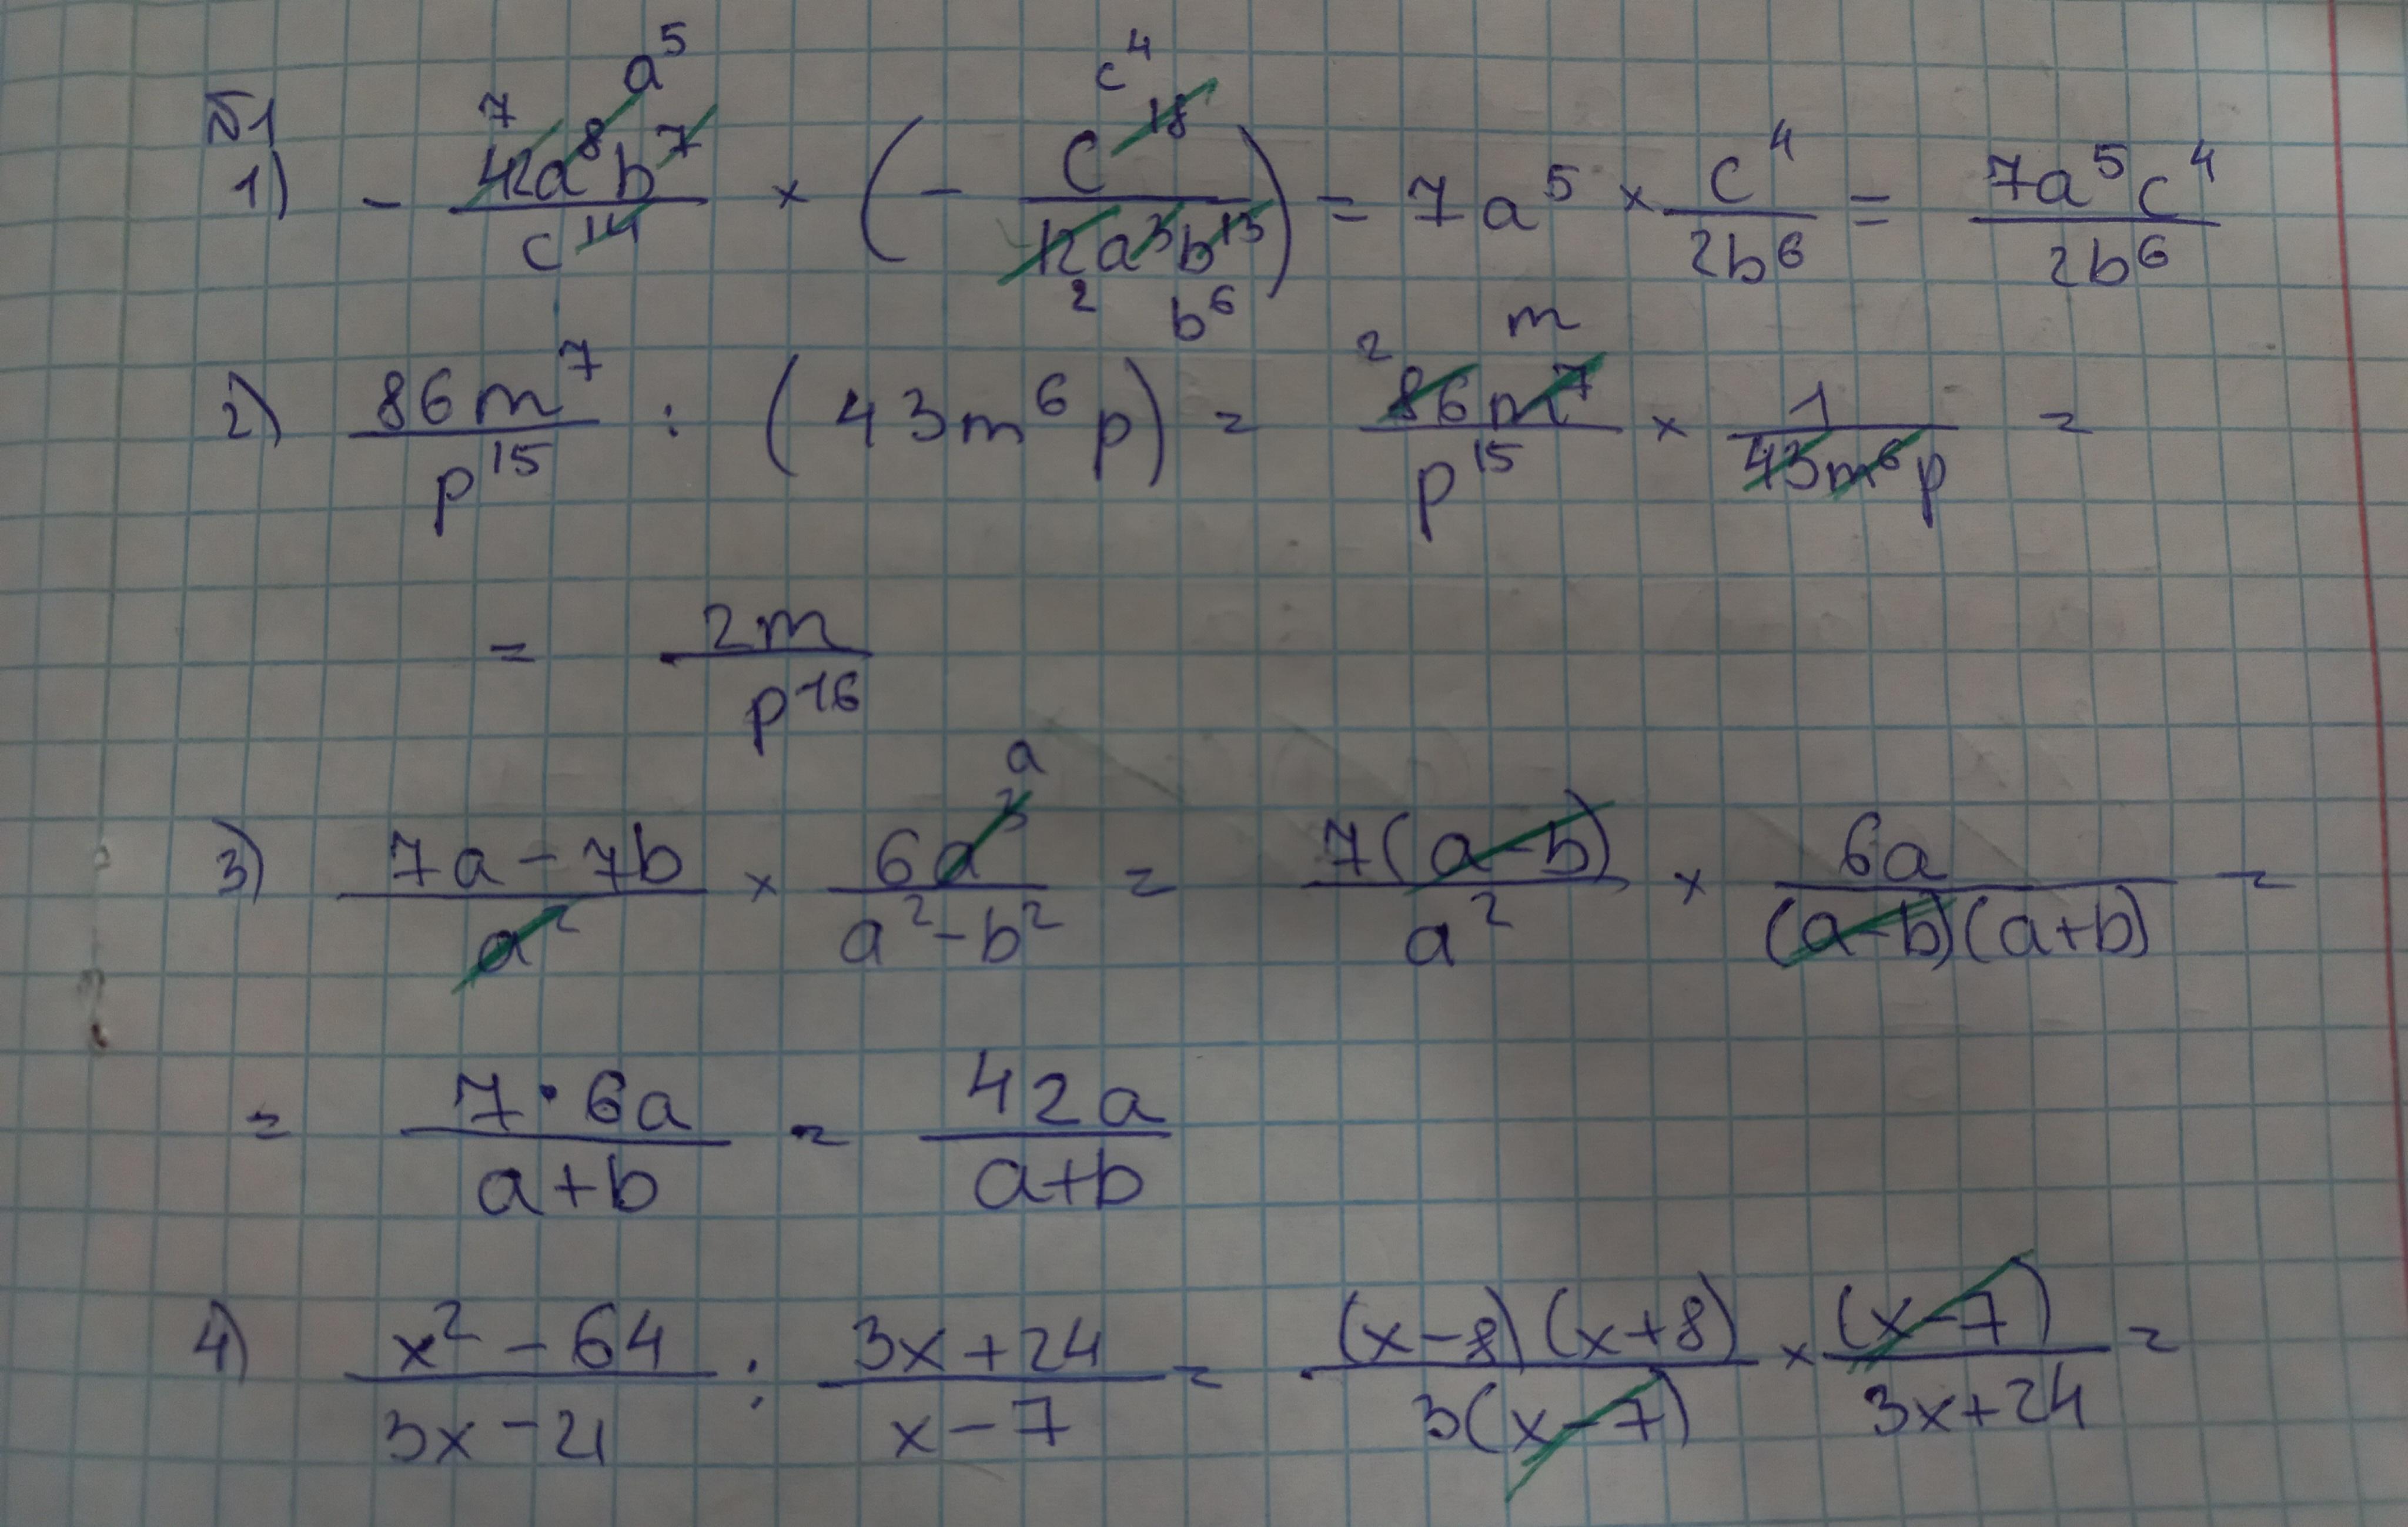 №1
1) - 42a⁸b⁷/c¹⁴ × (- c¹⁸/12a³b¹³) = 7a⁵ × c⁴/2b⁶ = 7a⁵c⁴/2b⁶
2) 86m⁷/p¹⁵ : (43m⁶p) = 86m⁷/p¹⁵ × 1/43m⁶p =
= 2m/p¹⁶
3) 7a-7b/a² × 6a³/a²-b² = 7(a-b)/a² × 6a/(a-b)(a+b) =
= 7·6a/a+b = 42a/a+b
4) x²-64/3x-21 : 3x+24/x-7 = (x-8)(x+8)/3(x-7) × (x-7)/3x+24 =